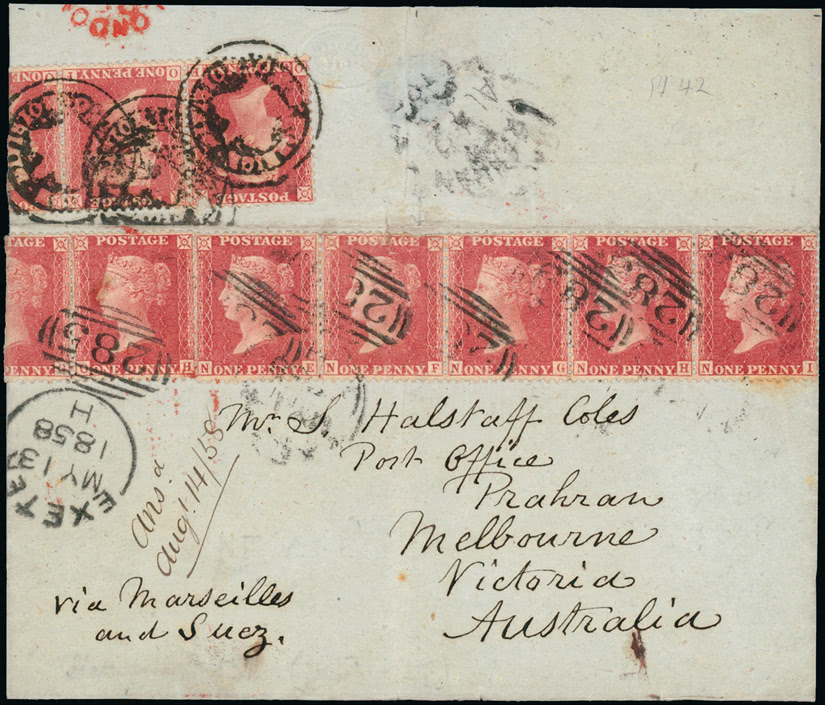 OND
Pf 42
POSTAGE
ONE PENNY
POSTAGE
ONE PENNY
POSTAGE
POSTAGE
POSTAGE
POSTAGE
POSTAGE
POSTAGE
ONE PENNY
N ONE PENNY H
N ONE PENNY E
N ONE PENNY F
N ONE PENNY G
N ONE PENNY H
N ONE PENNY I
285
28
28
28
28
EXETER
MY 13
1858
H
Mr. S. Halstaff Coles
Post Office
Prahran
Melbourne
Victoria
Australia
Ans.d
Augt 14/58
via Marseilles
and Suez.